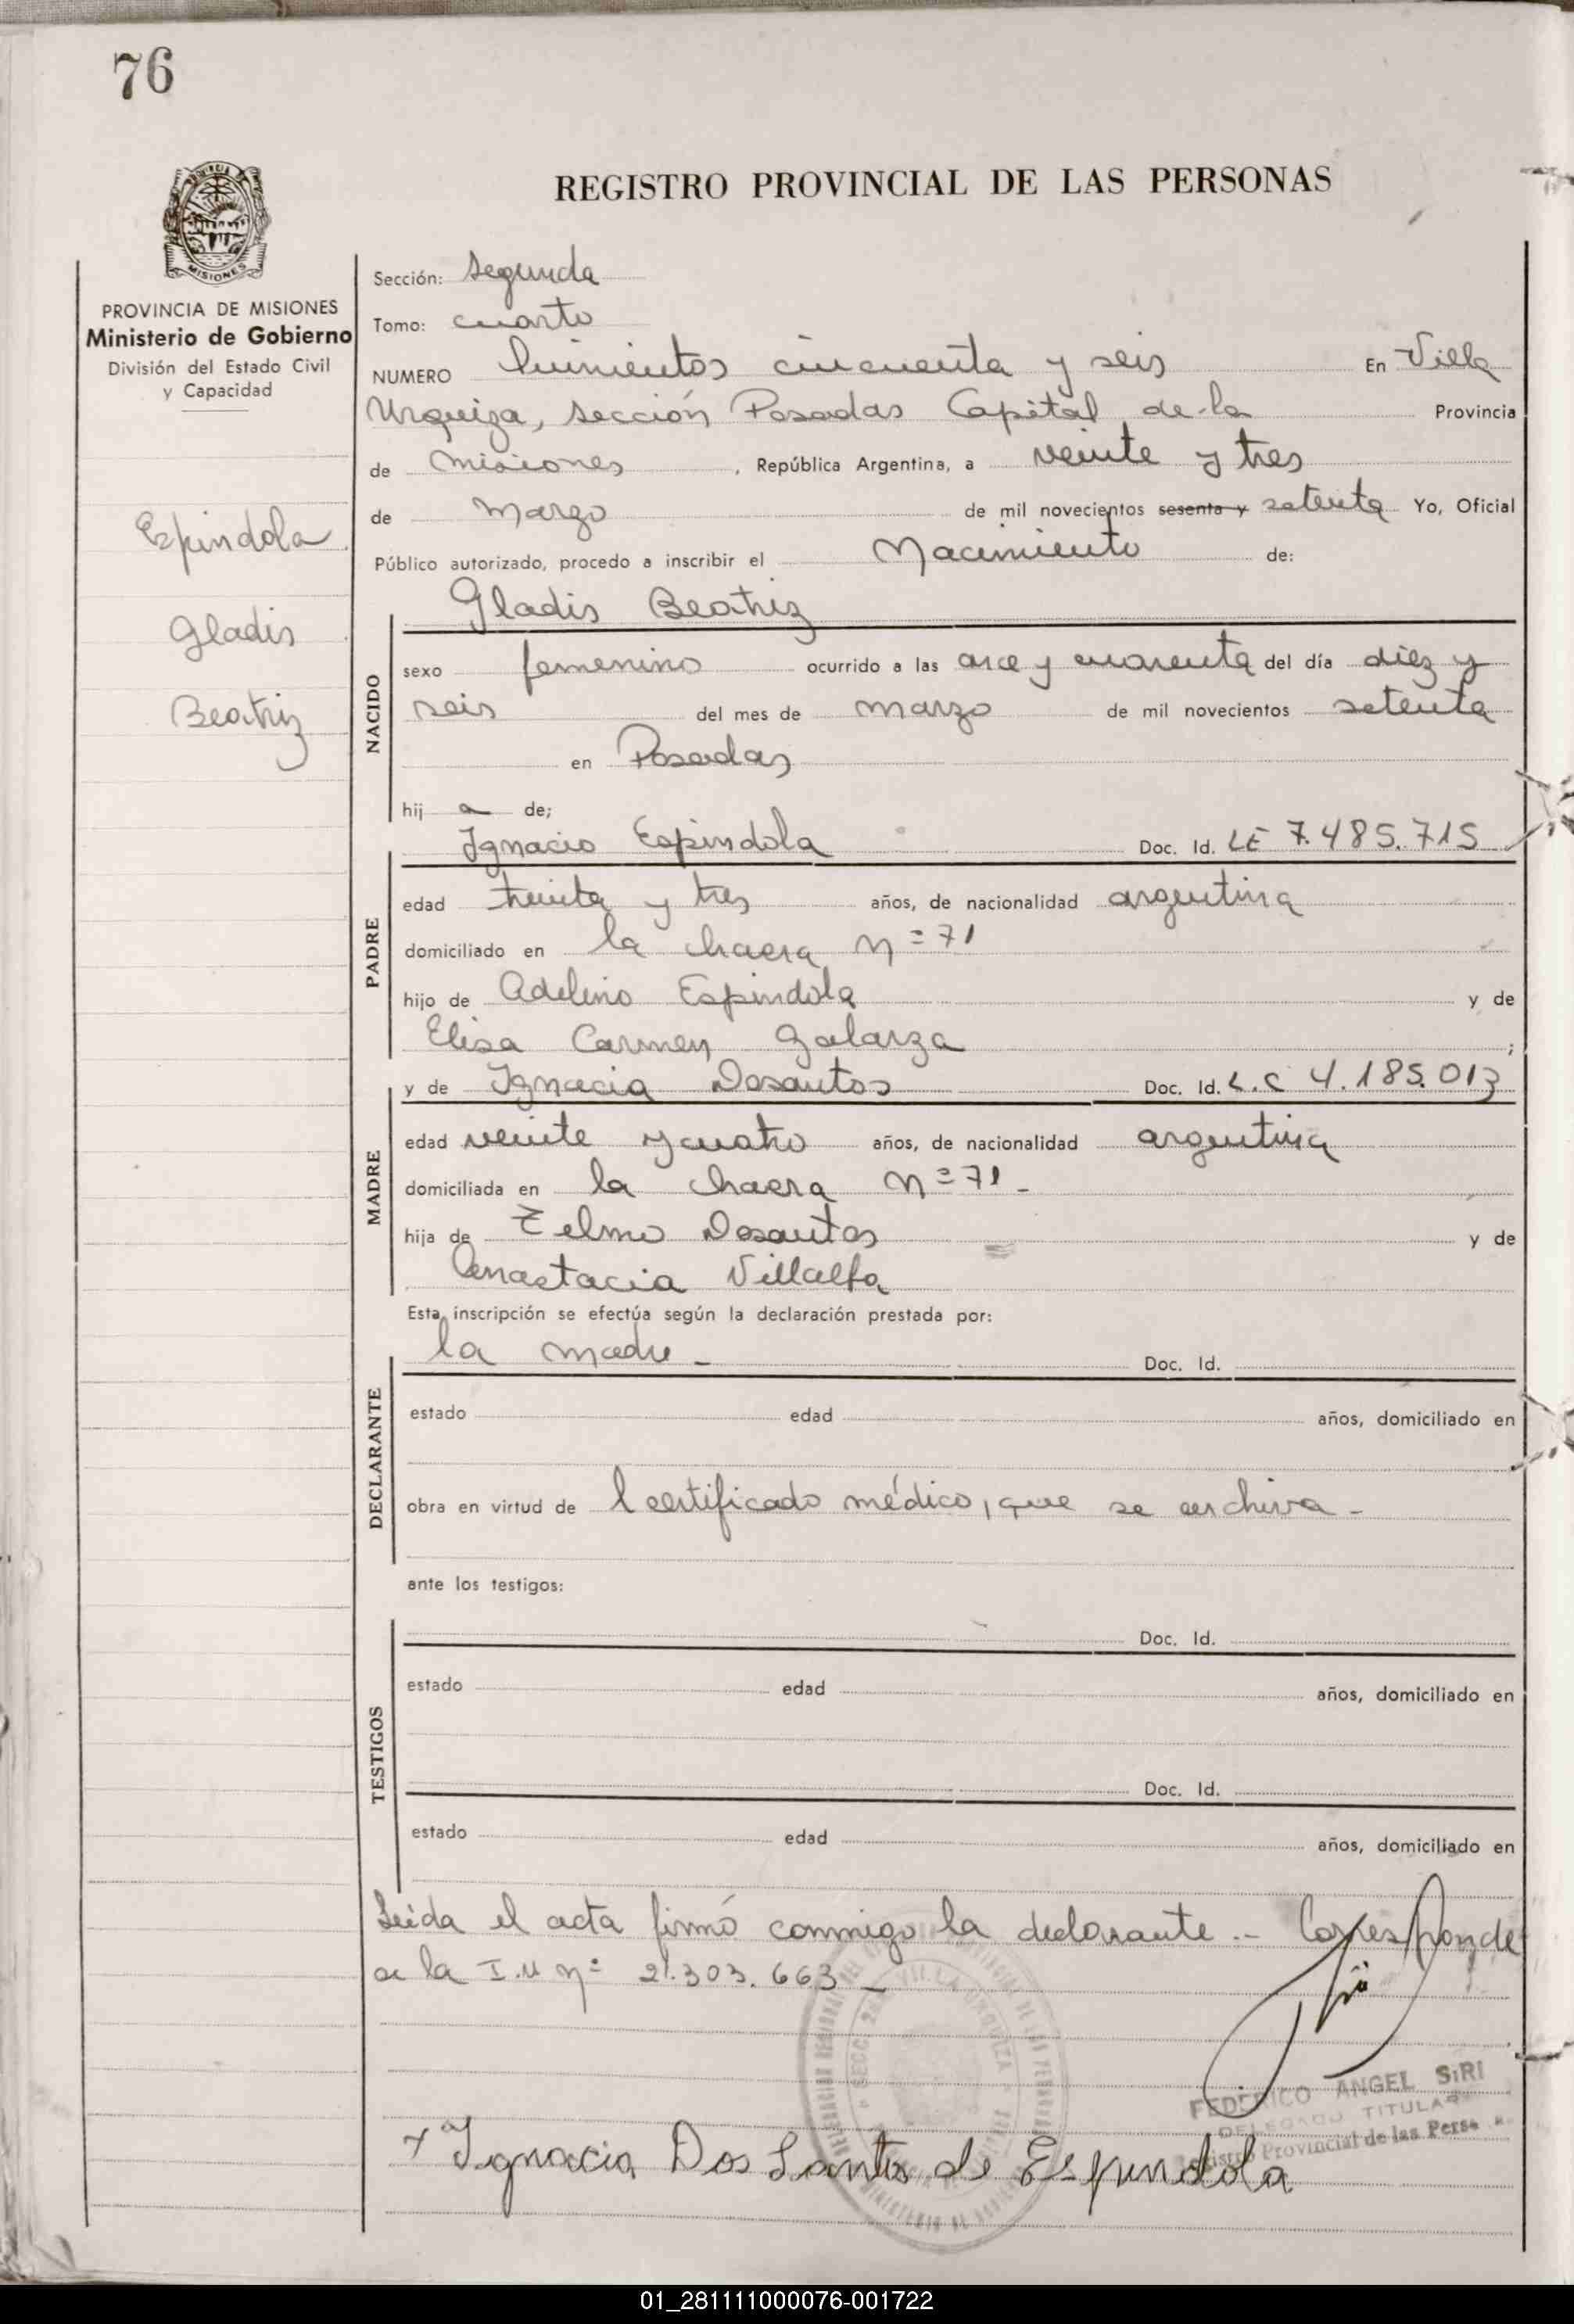 76
PROVINCIA DE MISIONES
MISIONES
PROVINCIA DE MISIONES
Ministerio de Gobierno
División del Estado Civil
y Capacidad
Espindola
Gladis
Beatriz
REGISTRO PROVINCIAL DE LAS PERSONAS
Sección: segunda
Tomo: cuarto
NUMERO Quinientos cincuenta y seis En Villa
Urquiza, sección Posadas Capital de la Provincia
de misiones, República Argentina, a veinte y tres
de marzo de mil novecientos sesenta y setenta Yo, Oficial
Público autorizado, procedo a inscribir el Nacimiento de:
Gladis Beatriz
NACIDO
sexo femenino ocurrido a las once y cuarenta del día diez y
seis del mes de marzo de mil novecientos setenta
en Posadas
hij a de;
Ignacio Espindola Doc. Id. LE 7.485.715
PADRE
edad treinta y tres años, de nacionalidad argentina
domiciliado en la chacra nº 71
hijo de Adelino Espindola y de
Elisa Carmen Galarza ;
y de Ignacia Dosantos Doc. Id. L.C 4.185.013
MADRE
edad veinte y cuatro años, de nacionalidad argentina
domiciliada en la chacra nº 71 -
hija de Telmo Dosantos y de
Anastacia Villalba
Esta inscripción se efectúa según la declaración prestada por:
la madre - Doc. Id.
DECLARANTE
estado edad años, domiciliado en
obra en virtud de l certificado médico, que se archiva -
ante los testigos:
Doc. Id.
TESTIGOS
estado edad años, domiciliado en
Doc. Id.
estado edad años, domiciliado en
Leida el acta firmó conmigo la declarante .- Corresponde
a la I.M nº 21.303.663 -
FEDERICO ANGEL SIRI
DELEGADO TITULAR
Registro Provincial de las Perso
Ignacia Dos Santos de Espindola
01_281111000076-001722